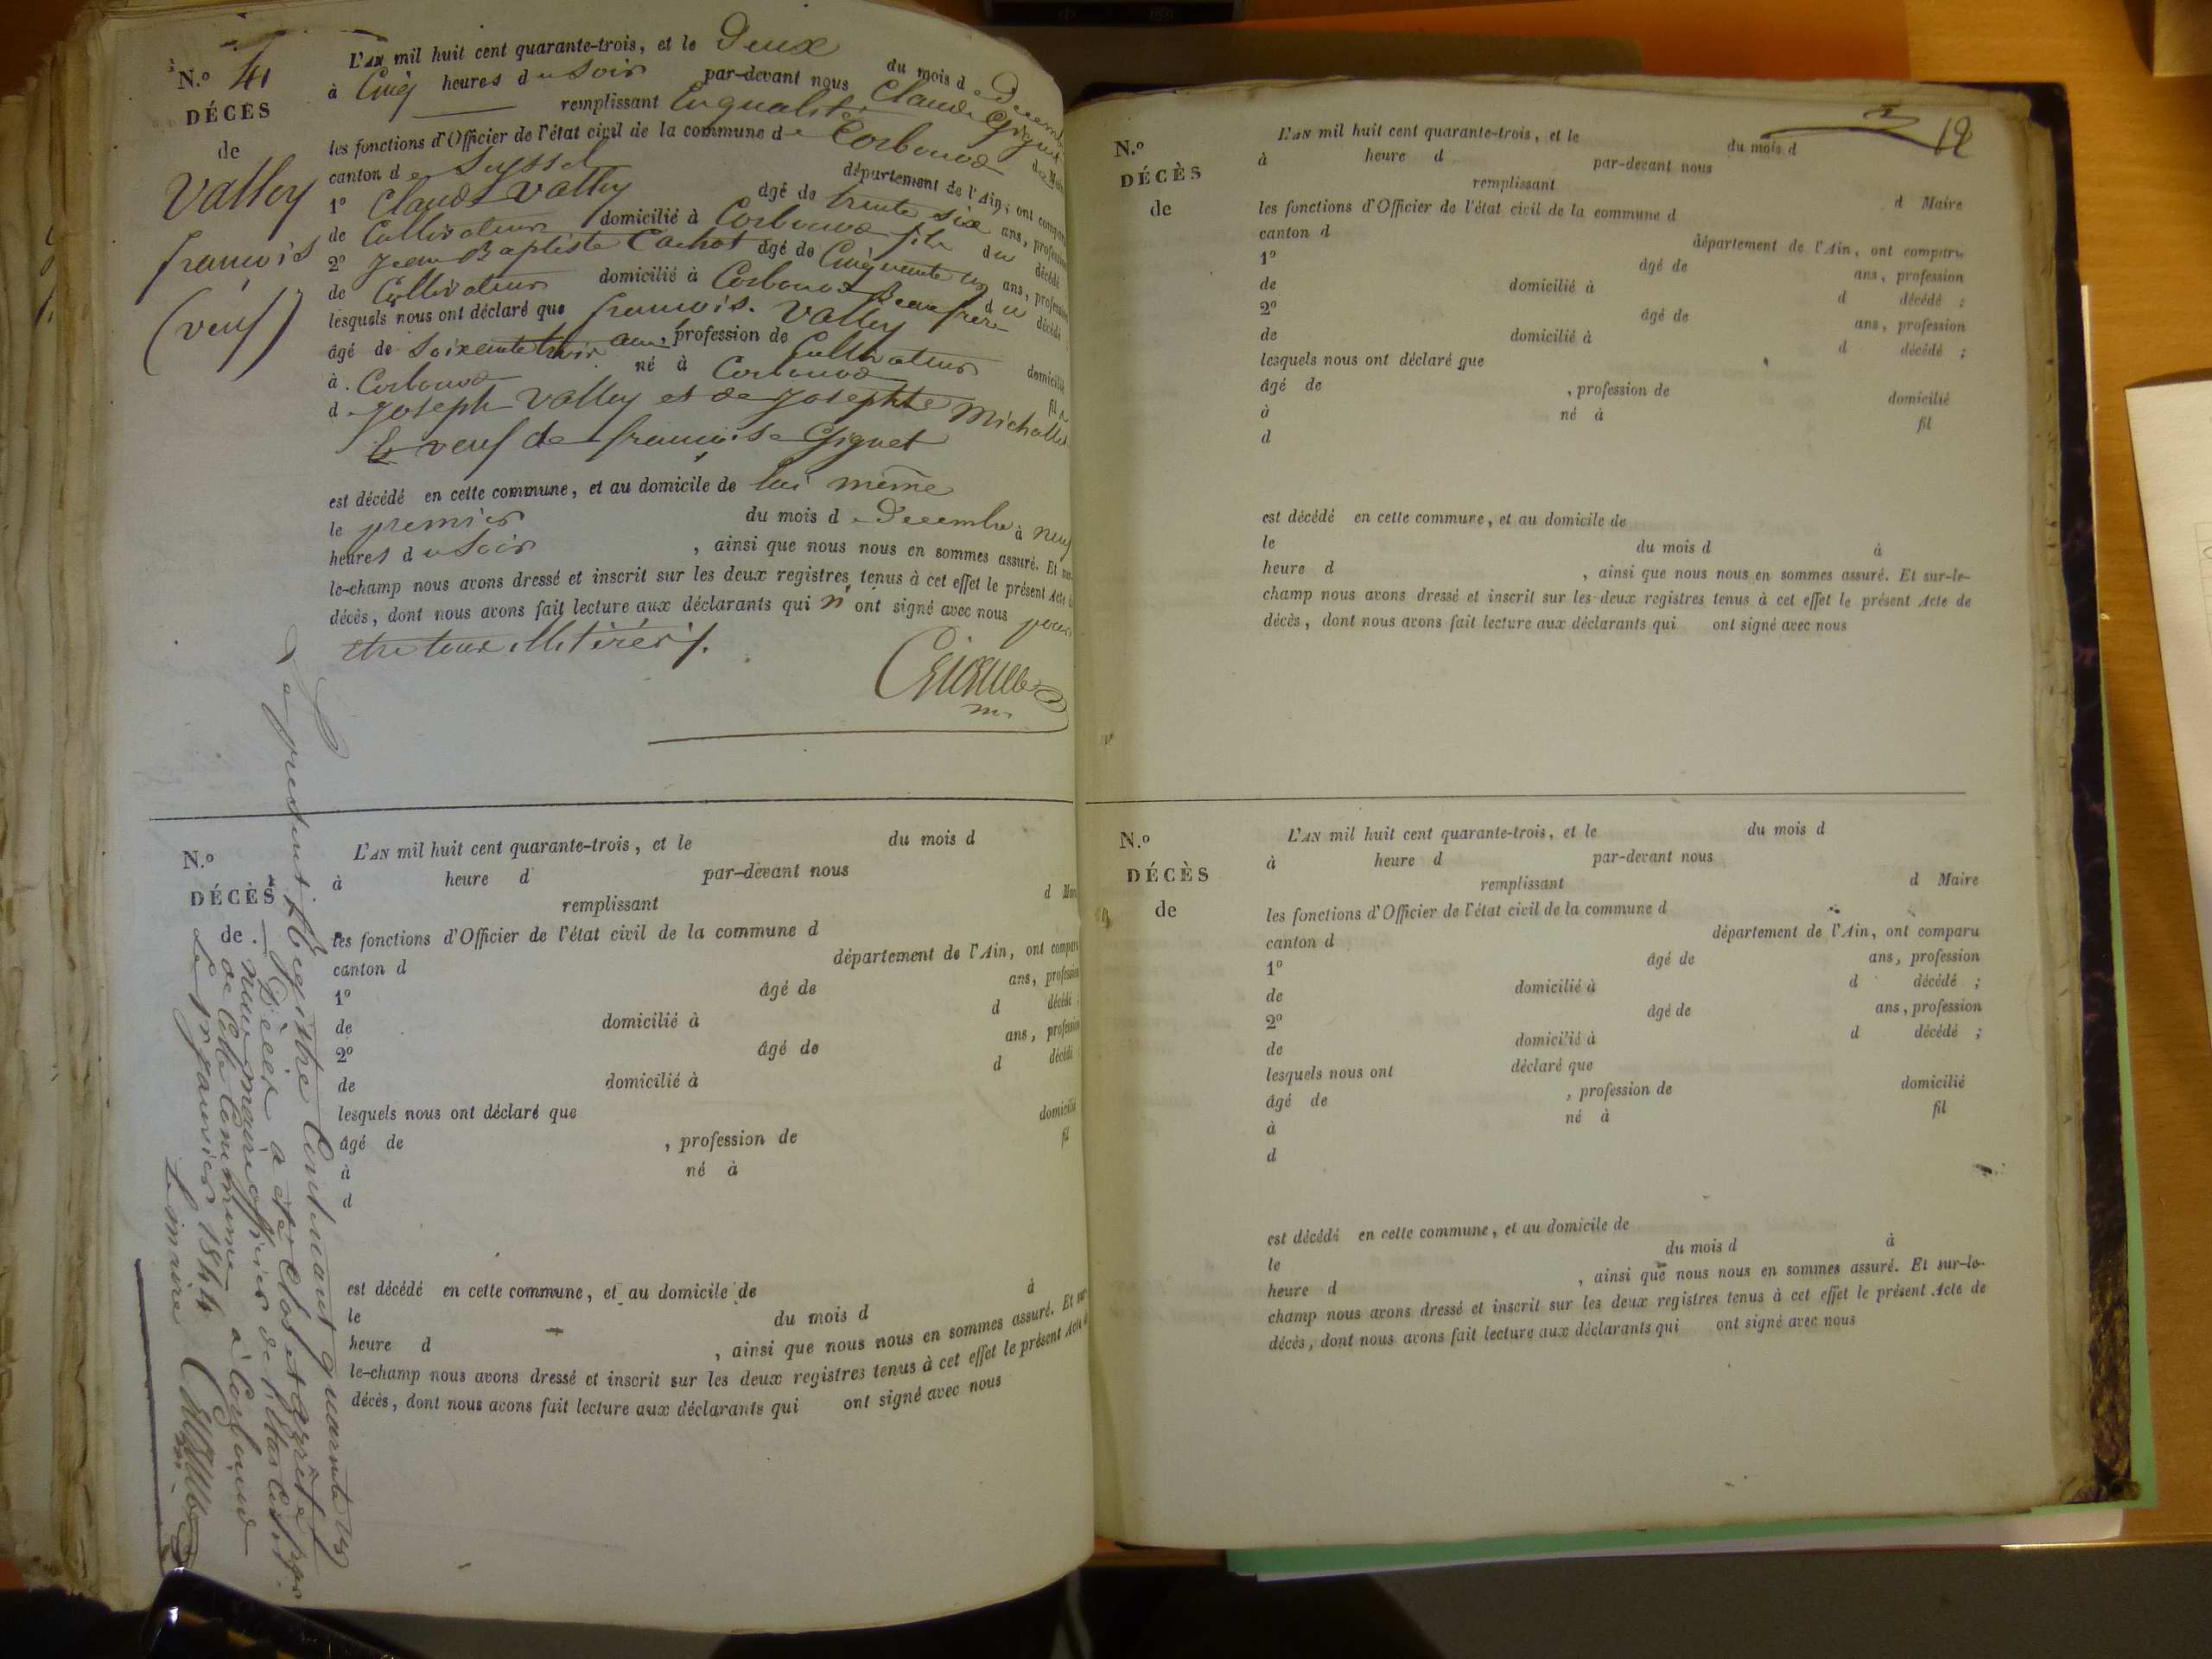 N.º 41
DÉCÈS
de
Valley
francois
(veuf)
L'AN mil huit cent quarante-trois, et le Deux du mois d e Décemb
à Cinq heures d u Soir par-devant nous Claude Giguet
remplissant En qualité de Maire
les fonctions d'Officier de l'état civil de la commune d e Corbonod
canton d e Seyssel département de l'Ain, ont comparu
1º Claude Valley âgé de trente six ans, profession
de Cultivateur domicilié à Corbonod fils du décédé
2º Jean Baptiste Cachot âgé de Cinquante un ans, profession
de Cultivateur domicilié à Corbonod Beaufrere d u décédé
lesquels nous ont déclaré que francois Valley
âgé de Soixante trois ans, profession de Cultivateur domicilié
à Corbonod né à Corbonod fil s
d e Joseph Valley et de Josephte Michallet
veuf de francoise Giguet
est décédé en cette commune, et au domicile de lui même
le premier du mois d e Decembre à neuf
heures d u Soir , ainsi que nous nous en sommes assuré. Et sur-
le-champ nous avons dressé et inscrit sur les deux registres tenus à cet effet le présent Acte de
décès, dont nous avons fait lecture aux déclarants qui n' ont signé avec nous pour
etre tous illitérés.
Giguet
m.
Le present Registre Contenant quarante un
Décès a été Clos et arrêté par
nous maire officier de l'état Civil
de Cette Commune à Corbonod
Le 1er janvier 1844
Le maire Giguet
N.º
DÉCÈS
de
L'AN mil huit cent quarante-trois, et le du mois d
à heure d par-devant nous
remplissant d Maire
les fonctions d'Officier de l'état civil de la commune d
canton d département de l'Ain, ont comparu
1º âgé de ans, profession
de domicilié à d décédé ;
2º âgé de ans, profession
de domicilié à d décédé ;
lesquels nous ont déclaré que
âgé de , profession de domicilié
à né à fil
d
est décédé en cette commune, et au domicile de
le du mois d à
heure d , ainsi que nous nous en sommes assuré. Et sur-
le-champ nous avons dressé et inscrit sur les deux registres tenus à cet effet le présent Acte de
décès, dont nous avons fait lecture aux déclarants qui ont signé avec nous
12
N.º
DÉCÈS
de
L'AN mil huit cent quarante-trois, et le du mois d
à heure d par-devant nous
remplissant d Maire
les fonctions d'Officier de l'état civil de la commune d
canton d département de l'Ain, ont comparu
1º âgé de ans, profession
de domicilié à d décédé ;
2º âgé de ans, profession
de domicilié à d décédé ;
lesquels nous ont déclaré que
âgé de , profession de domicilié
à né à fil
d
est décédé en cette commune, et au domicile de
le du mois d à
heure d , ainsi que nous nous en sommes assuré. Et sur-le-
champ nous avons dressé et inscrit sur les deux registres tenus à cet effet le présent Acte de
décès, dont nous avons fait lecture aux déclarants qui ont signé avec nous
N.º
DÉCÈS
de
L'AN mil huit cent quarante-trois, et le du mois d
à heure d par-devant nous
remplissant d Maire
les fonctions d'Officier de l'état civil de la commune d
canton d département de l'Ain, ont comparu
1º âgé de ans, profession
de domicilié à d décédé ;
2º âgé de ans, profession
de domicilié à d décédé ;
lesquels nous ont déclaré que
âgé de , profession de domicilié
à né à fil
d
est décédé en cette commune, et au domicile de
le du mois d à
heure d , ainsi que nous nous en sommes assuré. Et sur-le-
champ nous avons dressé et inscrit sur les deux registres tenus à cet effet le présent Acte de
décès, dont nous avons fait lecture aux déclarants qui ont signé avec nous